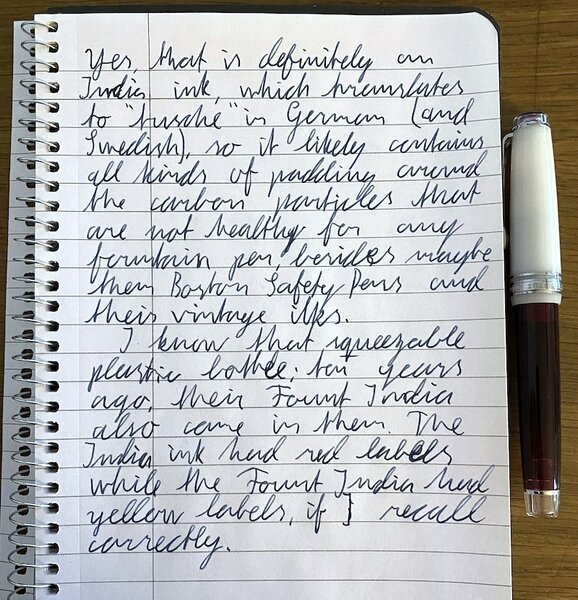 Yes, that is definitely an
India ink, which translates
to "tusche" in German (and
Swedish), so it likely contains
all kinds of padding around
the carbon particles that
are not healthy for any
fountain pen, besides maybe
them Boston Safety Pens and
their vintage ilks.
I know that squeezable
plastic bottle; ten years
ago, their Fount India
also came in them. The
India ink had red labels
while the Fount India had
yellow labels, if I recall
correctly.